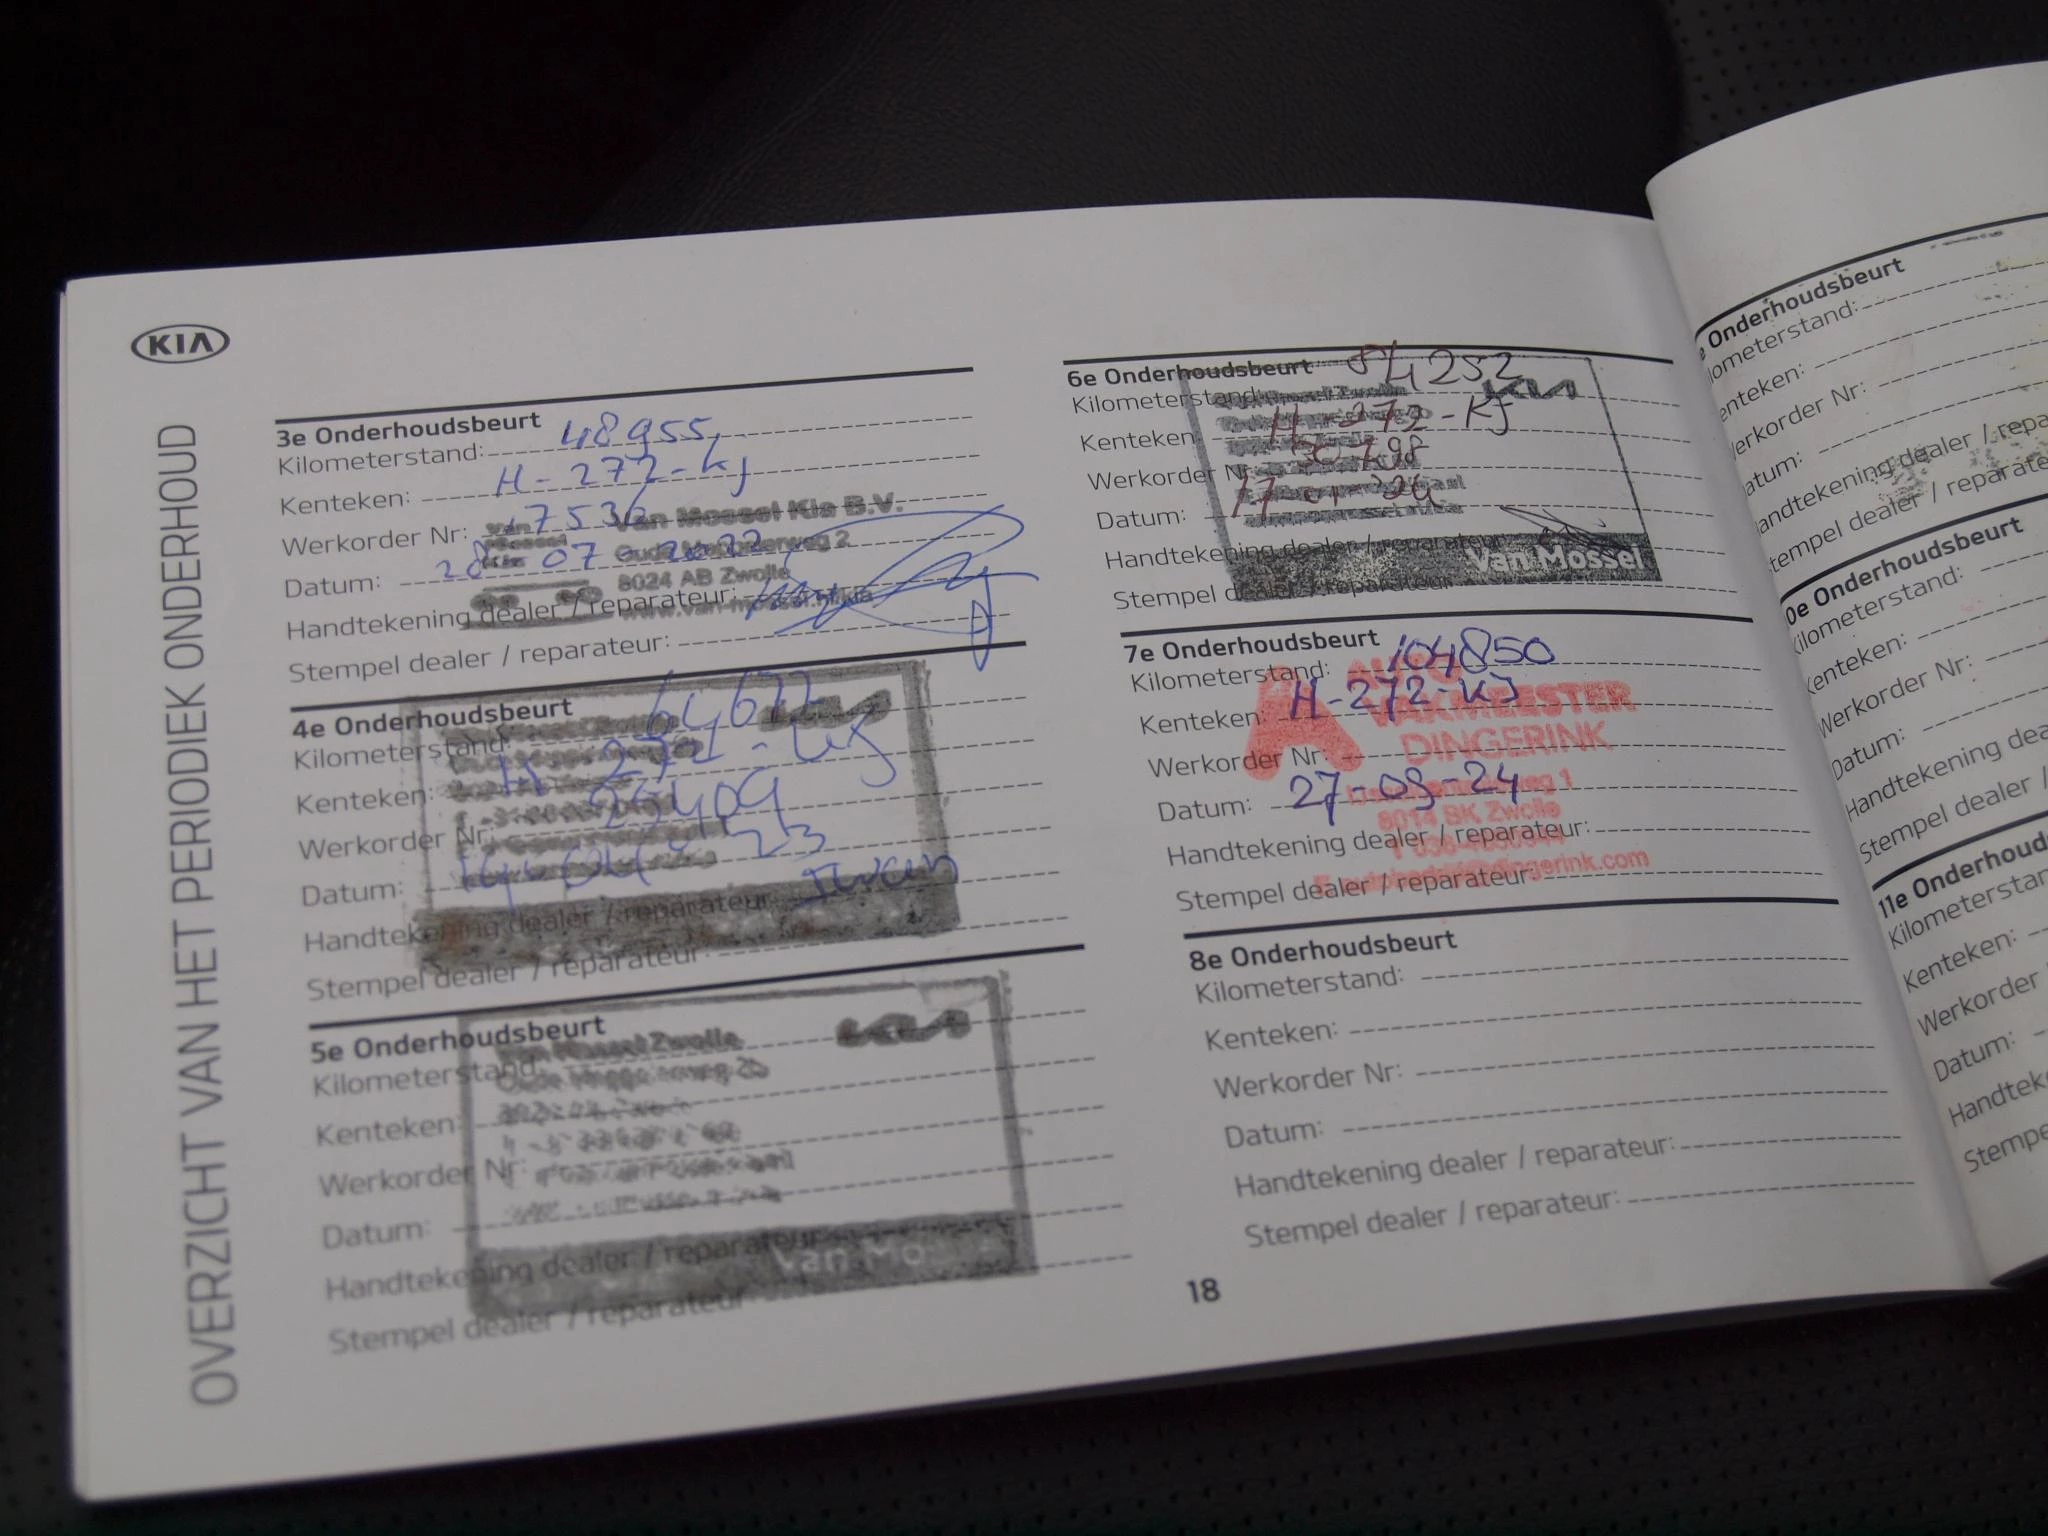 KIA
OVERZICHT VAN HET PERIODIEK ONDERHOUD
3e Onderhoudsbeurt
Kilometerstand: 48955
Kenteken: H-272-KJ
Werkorder Nr: 17536
Van Mossel Kia B.V.
Datum: 28-07-2022
Oude Meppelerweg 2
8024 AB Zwolle
Handtekening dealer / reparateur:
www.van-mossel.nl/kia
Stempel dealer / reparateur:
4e Onderhoudsbeurt
Kilometerstand: 64677
Kenteken: H 272-KJ
Werkorder Nr: 25409
Datum: 14-04-23
Handtekening dealer / reparateur:
Stempel dealer / reparateur:
5e Onderhoudsbeurt
Van Mossel Zwolle
Kilometerstand:
Oude Meppelerweg 2b
Kenteken:
Werkorder Nr:
Datum:
Handtekening dealer / reparateur:
Van Mos
Stempel dealer / reparateur:
6e Onderhoudsbeurt 84252
Kilometerstand:
KIA
Kenteken: H-272-KJ
Werkorder Nr: 30798
Datum: 17-01-24
Handtekening dealer / reparateur:
Van Mossel
Stempel dealer / reparateur:
7e Onderhoudsbeurt
Kilometerstand: 104850
Kenteken: H-272-KJ
VAKMEESTER
DINGERINK
Werkorder Nr:
Datum: 27-09-24
8014 BK Zwolle
Handtekening dealer / reparateur:
dingerink.com
Stempel dealer / reparateur:
8e Onderhoudsbeurt
Kilometerstand:
Kenteken:
Werkorder Nr:
Datum:
Handtekening dealer / reparateur:
Stempel dealer / reparateur:
18
e Onderhoudsbeurt
ilometerstand:
enteken:
Werkorder Nr:
atum:
andtekening dealer / repa
tempel dealer / reparate
0e Onderhoudsbeurt
Kilometerstand:
Kenteken:
Werkorder Nr:
Datum:
Handtekening dea
Stempel dealer /
11e Onderhoud
Kilometerstan
Kenteken:
Werkorder
Datum:
Handteke
Stempe